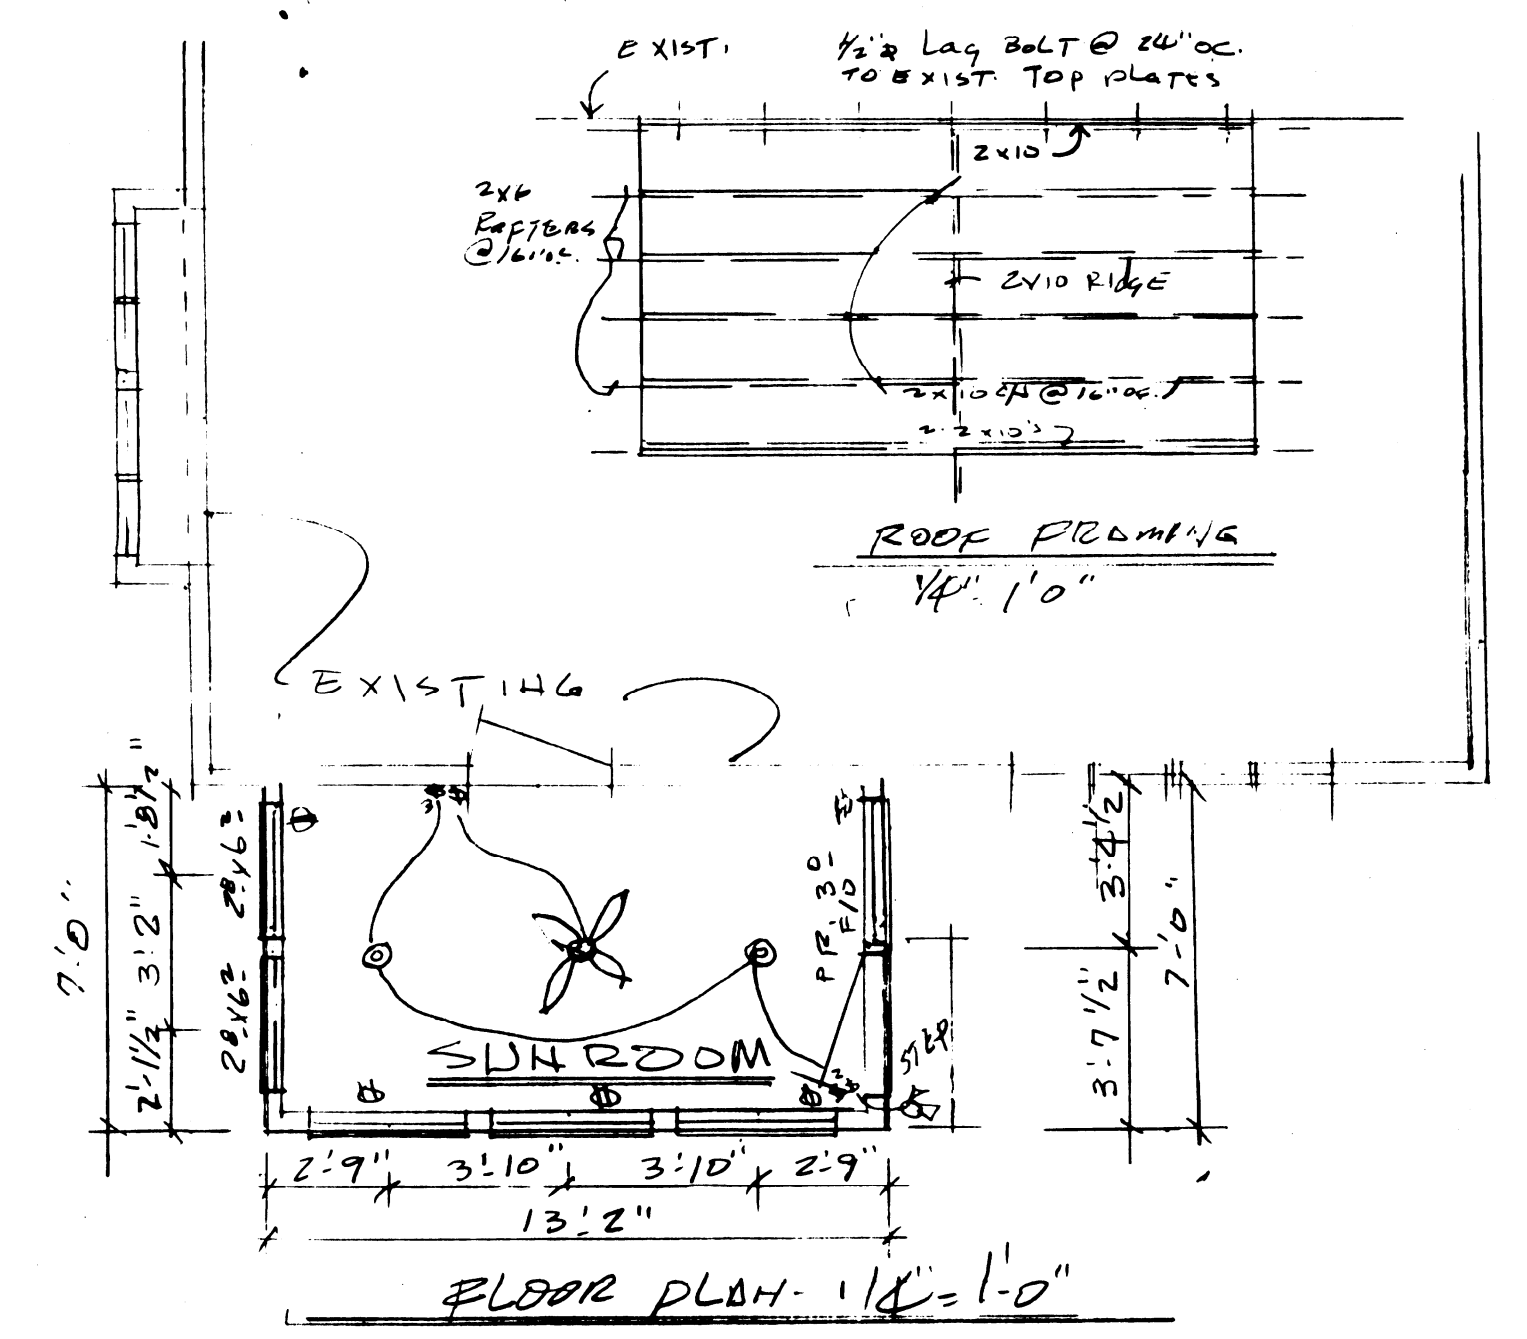 EXIST.
1/2"ø Lag BOLT @ 24" OC.
TO EXIST. TOP PLATES
2x10
2x6
RAFTERS
@ 16" oc.
2x10 RIDGE
2x10 C/J @ 16" OC.
2-2x10's
ROOF FRAMING
1/4" - 1'0"
EXISTING
7'-0"
1'-8 1/2"
3'-2"
2'-1 1/2"
2⁸x6²
2⁸x6²
3
PR. 3⁰
F/D
3'-4 1/2
7'-0"
3'-7 1/2"
STEP
SUNROOM
2
2'-9"
3'-10"
3'-10"
2'-9"
13'-2"
FLOOR PLAN- 1/4" = 1'-0"